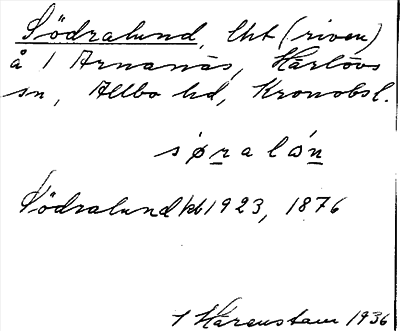 Södralund, lht (riven)
å 1 Arnanäs, Härlövs
sn, Allbo hd, Kronobsl.
Södralund kb 1923, 1876
Härenstam 1936